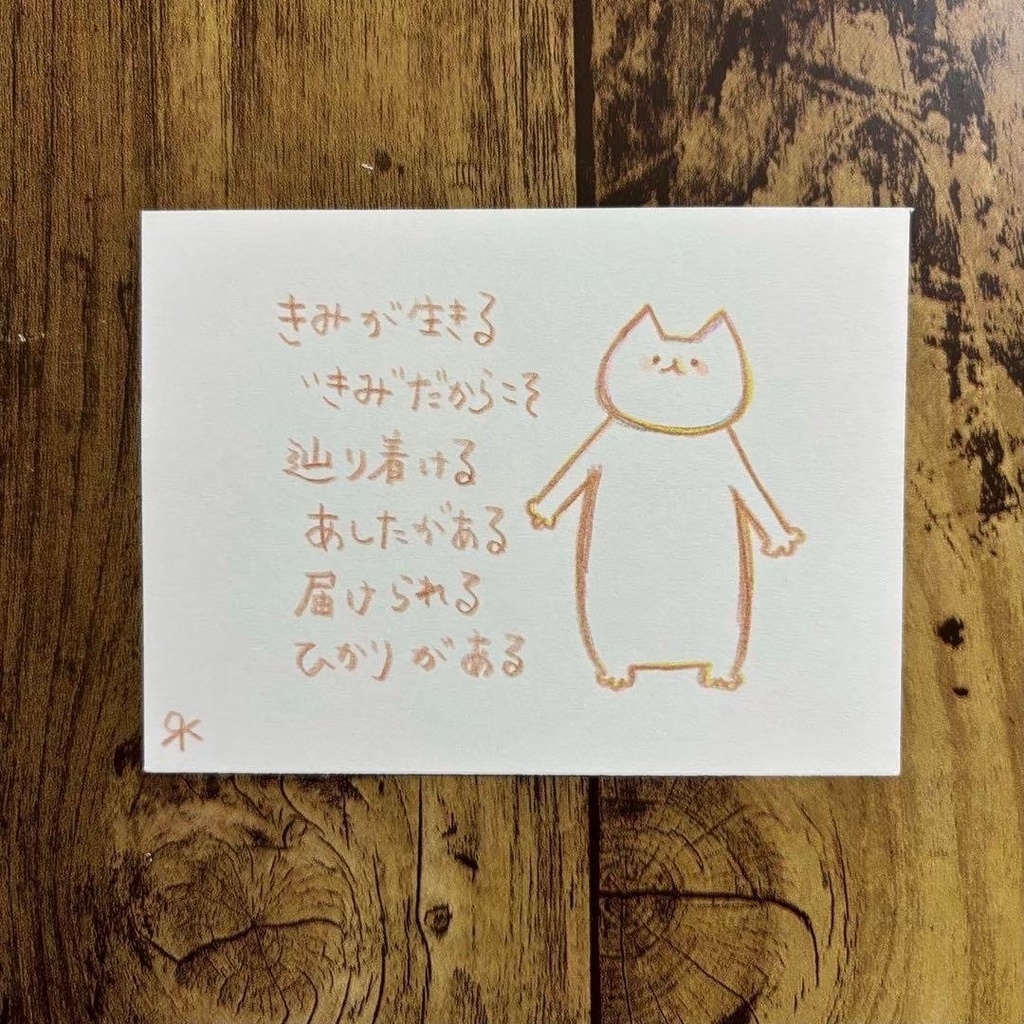 きみが生きる
"きみ"だからこそ
辿り着ける
あしたがある
届けられる
ひかりがある